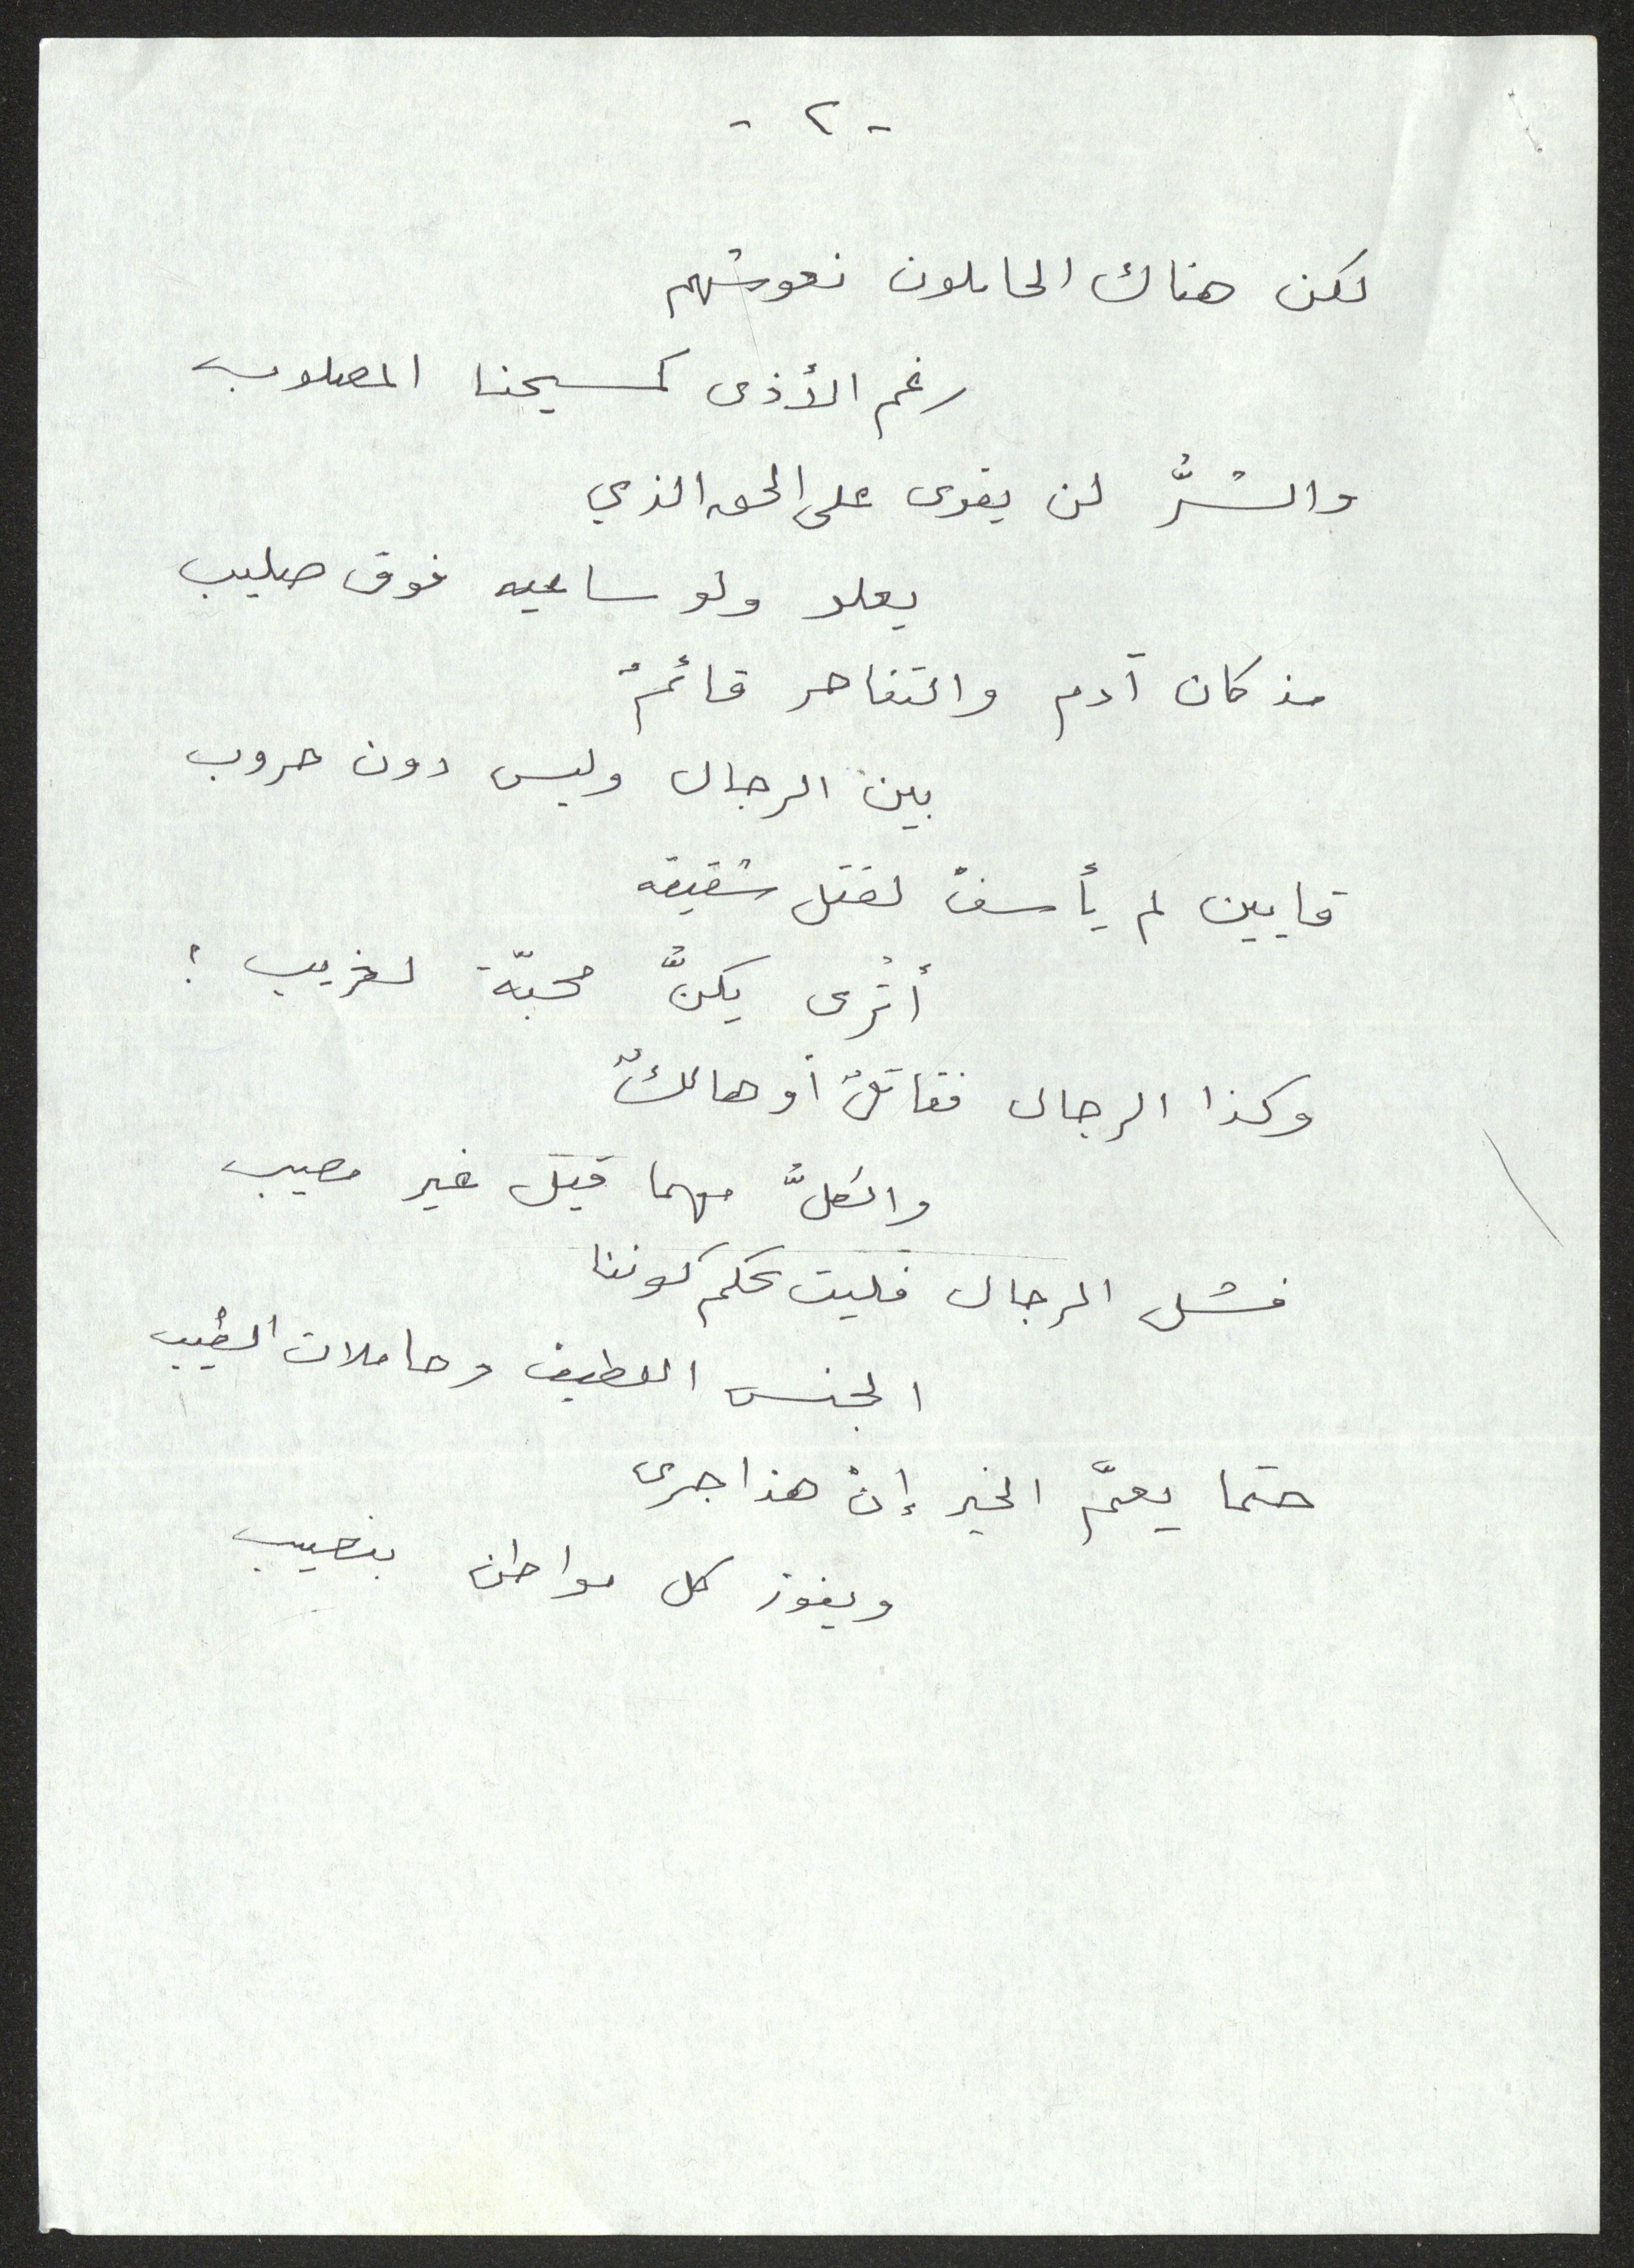 - ٢ -
لكن هناك الحاملون نعوشهم
رغم الأذى كمسيحنا المصلوب
والشرُّ لن يقوى على الحق الذي
يعلو ولو ساميه فوق صليب
مذ كان آدم والتناحر قائمٌ
بين الرجال وليس دون حروب
قايين لم يأسفْ لقتل شقيقه
أتُرى يكنُّ محبّة لغريب ؟
وكذا الرجال فقاتلٌ أو هالكٌ
والكلُّ مهما قيل غير مصيب
فشل الرجال فليت تحكم كوننا
الجنس اللطيف وحاملات الطيب
حتما يعمّ الخير إنْ هذا جرى
ويفوز كل مواطن بنصيب